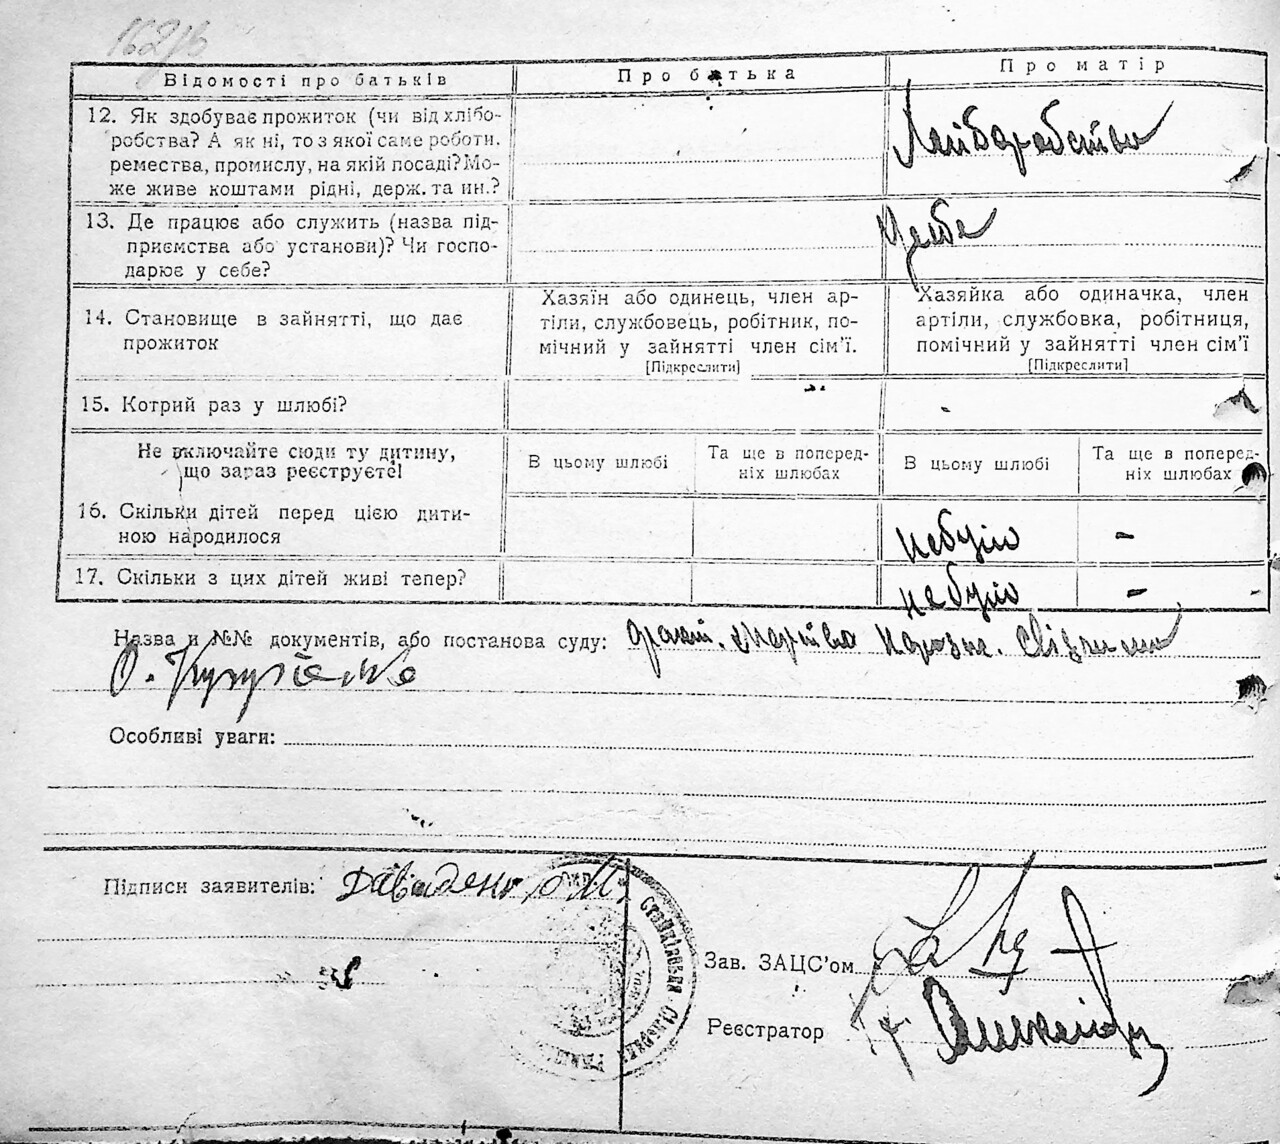 Відомості про батьків
Про батька
Про матір
12. Як здобуває прожиток (чи від хлібо-
робства? А як ні, то з якої саме роботи.
ремества, промислу, на якій посаді? Мо-
же живе коштами рідні, держ. та ин.?
Хліборобство
13. Де працює або служить (назва під-
приємства або установи)? Чи госпо-
дарює у себе?
14. Становище в зайнятті, що дає
прожиток
Хазяїн або одинець, член ар-
тіли, службовець, робітник, по-
мічний у зайнятті член сім'ї.
[Підкреслити]
Хазяйка або одиначка, член
артіли, службовка, робітниця,
помічний у зайнятті член сім'ї
[Підкреслити]
15. Котрий раз у шлюбі?
Не включайте сюди ту дитину,
що зараз реєструєте!
В цьому шлюбі
Та ще в поперед-
ніх шлюбах
В цьому шлюбі
Та ще в поперед-
ніх шлюбах
16. Скільки дітей перед цією дити-
ною народилося
небуло -
17. Скільки з цих дітей живі тепер?
небуло -
Назва и №№ документів, або постанова суду:
Особливі уваги:
Підписи заявителів: Давиденко
Зав. ЗАЦС'ом
Реєстратор